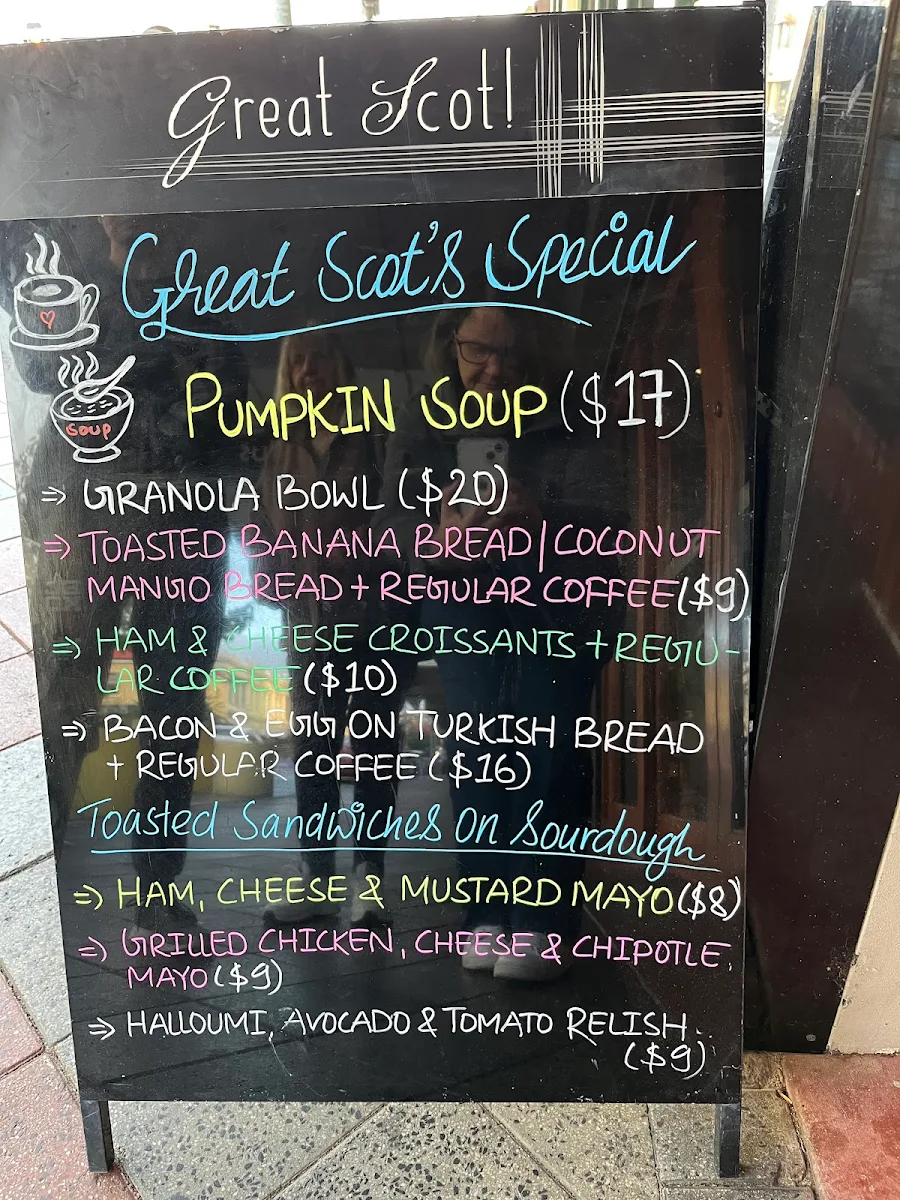 Great Scot!
Great Scot's Special
SOUP
PUMPKIN SOUP ($17)
⇒ GRANOLA BOWL ($20)
⇒ TOASTED BANANA BREAD/COCONUT
MANGO BREAD + REGULAR COFFEE ($9)
⇒ HAM & CHEESE CROISSANTS + REGU-
LAR COFFEE ($10)
⇒ BACON & EGG ON TURKISH BREAD
+ REGULAR COFFEE ($16)
Toasted Sandwiches On Sourdough
⇒ HAM, CHEESE & MUSTARD MAYO ($8)
⇒ GRILLED CHICKEN, CHEESE & CHIPOTLE
MAYO ($9)
⇒ HALLOUMI, AVOCADO & TOMATO RELISH.
($9)